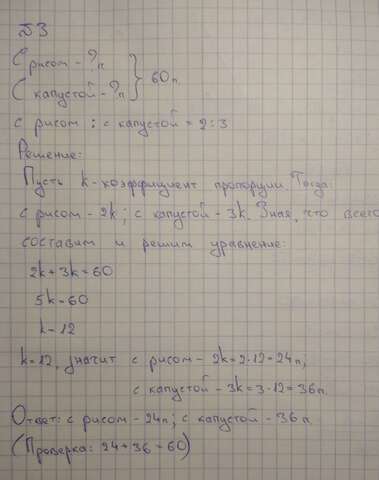 №3
С рисом - ?п
С капустой - ?п } 60п.
с рисом : с капустой = 2:3
Решение:
Пусть k-коэффициент пропорции. Тогда:
с рисом - 2k; с капустой - 3k. Зная, что всего
составим и решим уравнение:
2k+3k=60
5k=60
k=12
k=12, значит с рисом - 2k=2·12=24п;
с капустой - 3k=3·12=36п.
Ответ: с рисом - 24п; с капустой - 36п.
(Проверка: 24+36=60)